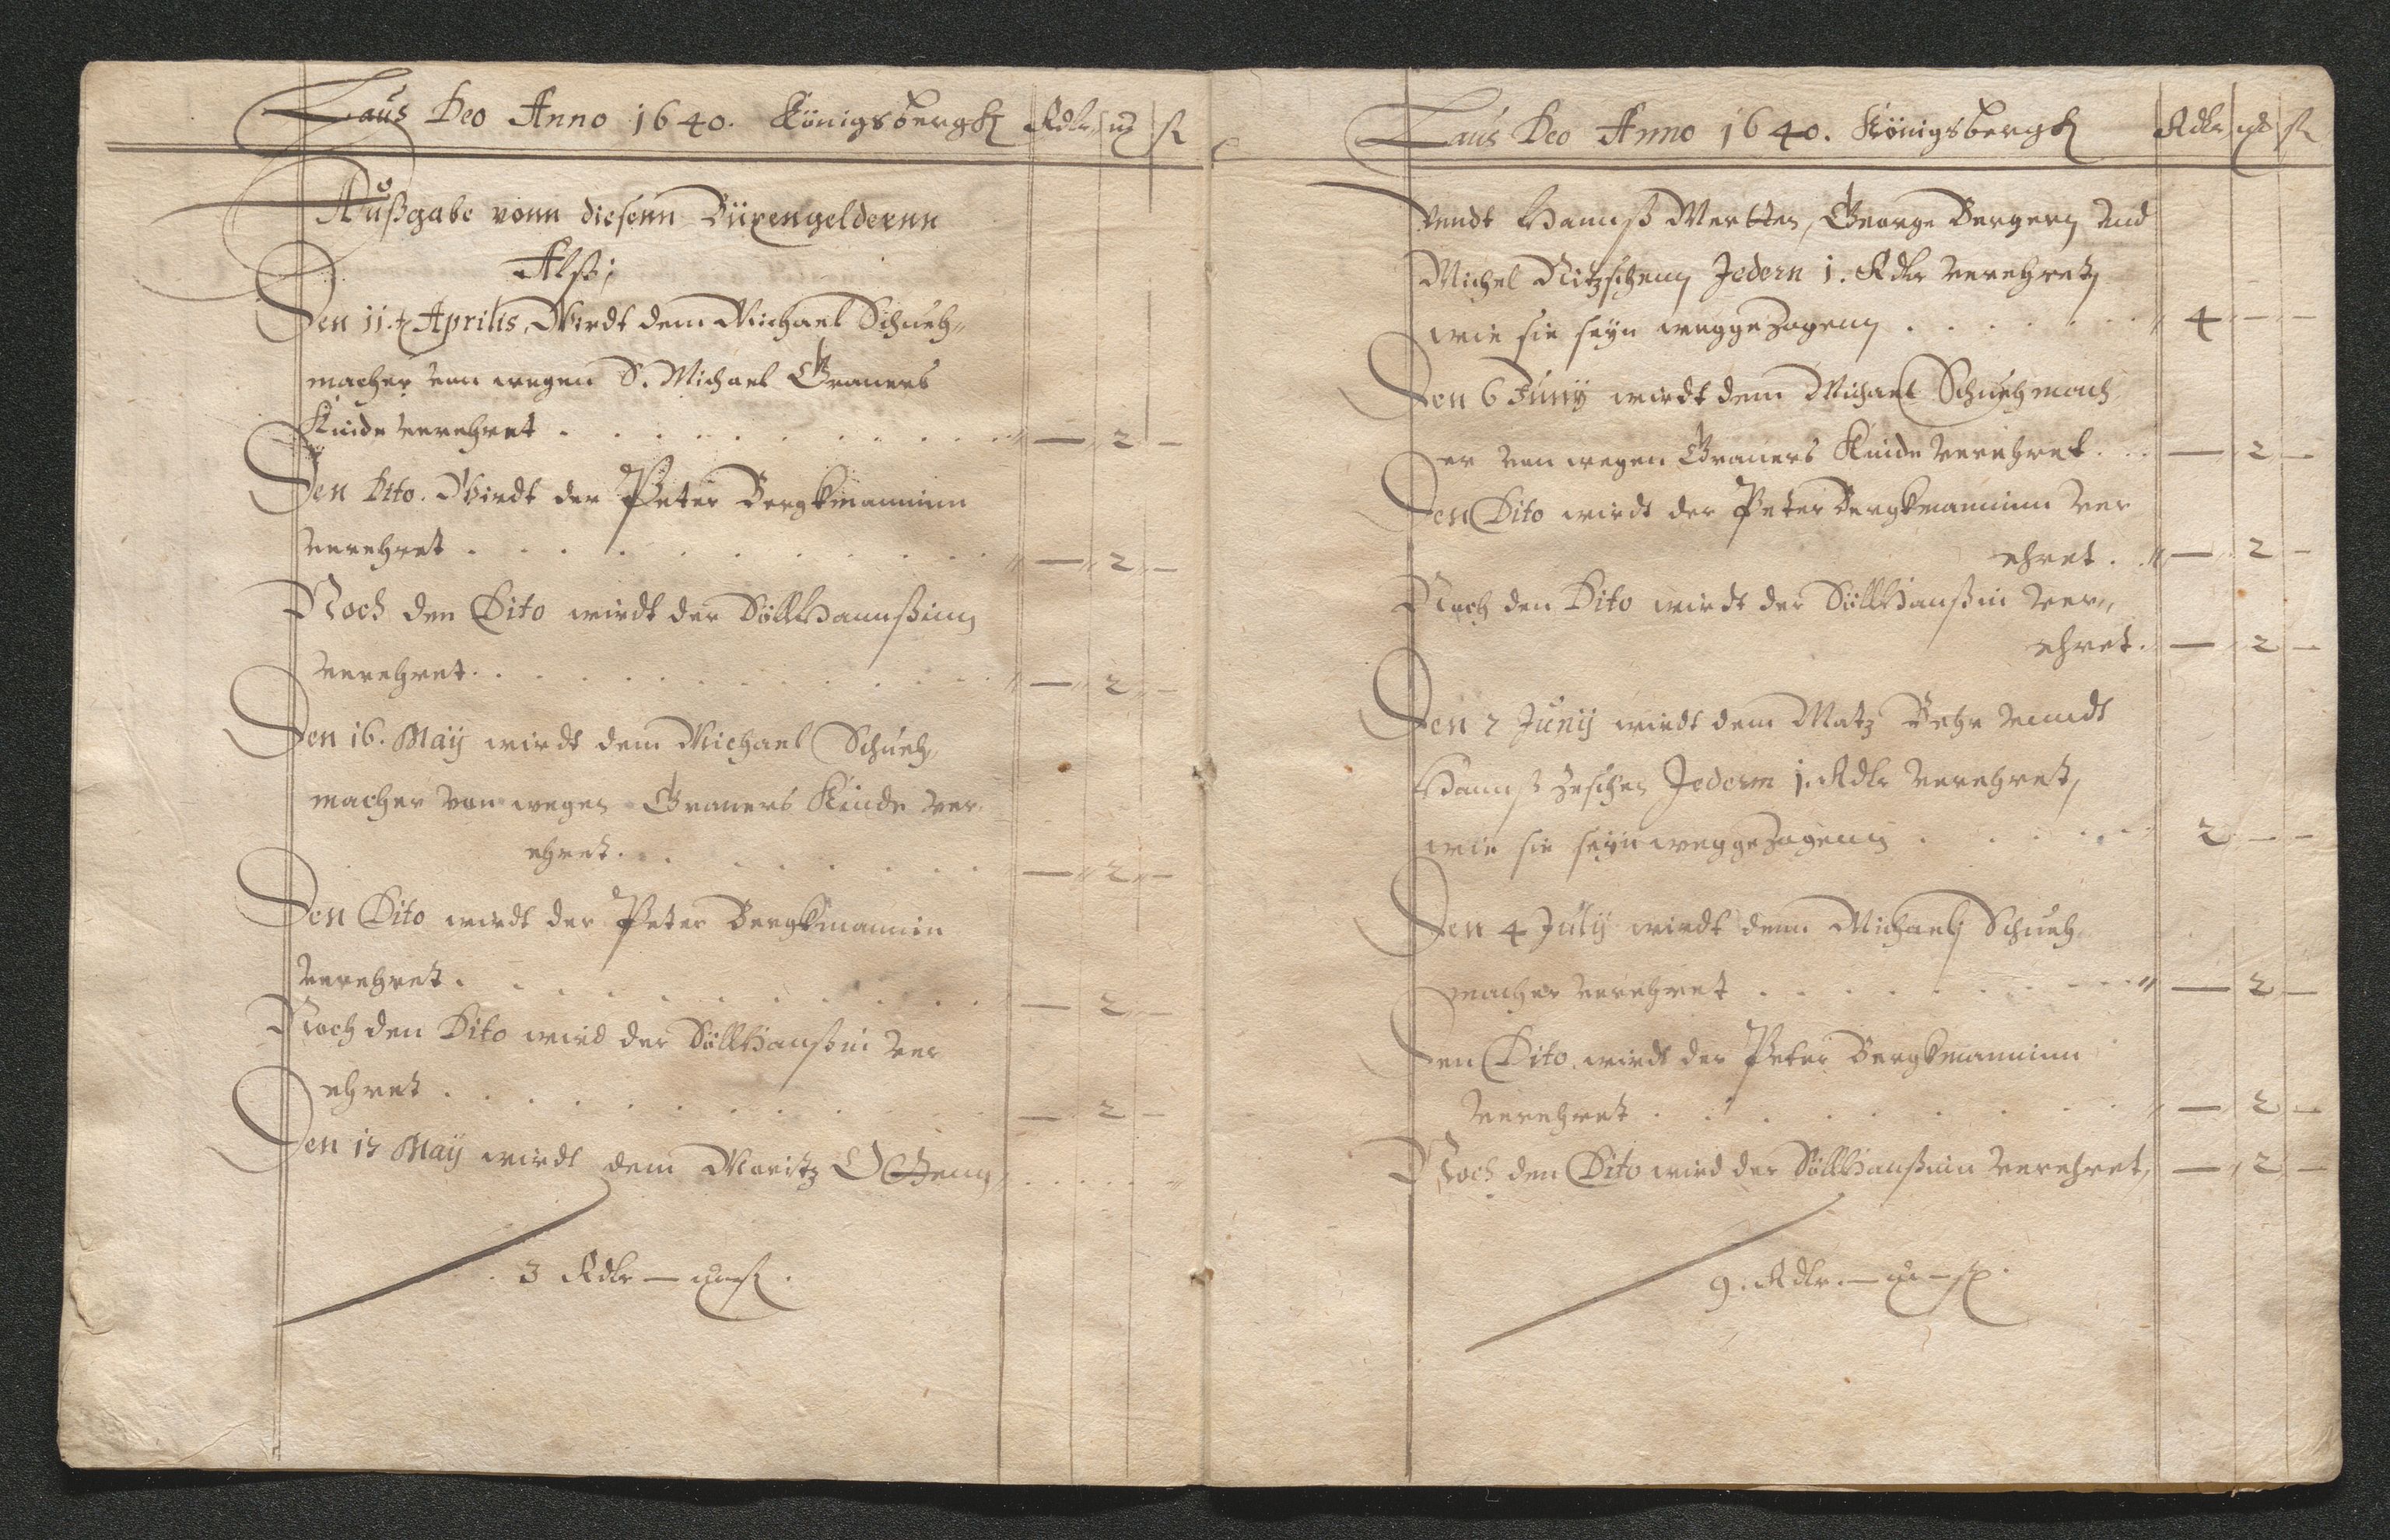 Laus Deo Anno 1640. Königsbergk Rdlr
Außgabe vonn diesenn Büxengeldernn
Alß;
Den 11. Aprilis, Wirdt dem Michael Schueh„
macher von wegen S. Michael Graners
Kinde verehret . . . — 2 —
Den Dito. Wirdt der Peter Bergkmanninn
verehret . . . — 2 —
Noch den Dito wirdt der Söllhannßinn
verehret . . . — 2 —
Den 16. Maÿ wirdt dem Michael Schueh„
macher von wegen Graners Kinde ver
ehret . . . — 2 —
Den Dito wirdt der Peter Bergkmannin
verehret . . . — 2 —
Noch den Dito wird der Söllhanßin ver
ehret . . . — 2 —
Den 17 Maÿ wirdt dem Moritz
3 Rdlr —
Laus Deo Anno 1640. Königsbergk Rdlr
vnndt Hannß Mertten, George Bergern vnd
Michel Nitzschenn Jedern 1. Rdlr verehret,
wie sie seÿn weggezogenn . . . 4 — —
Den 6 Junÿ wirdt dem Michael Schuehmach
er von wegen Graners Kinde verehret . . — 2 —
Den Dito wirdt der Peter Bergkmanninn ver
ehret . . — 2 —
Noch den Dito wirdt der Söllhanßin ver„
ehret . — 2 —
Den 7 Junÿ wirdt dem Matz Behr vnndt
Hannß Jedern 1. Rdlr verehret,
wie sie seÿn weggezogenn . . . 2 — —
Den 4 Julÿ wirdt dem Michael Schueh
macher verehret . . . — 2 —
Den Dito wirdt der Peter Bergkmanninn
verehret . . . — 2 —
Noch den Dito wird der Söllhanßnin verehret, — 2 —
9. Rdlr. —